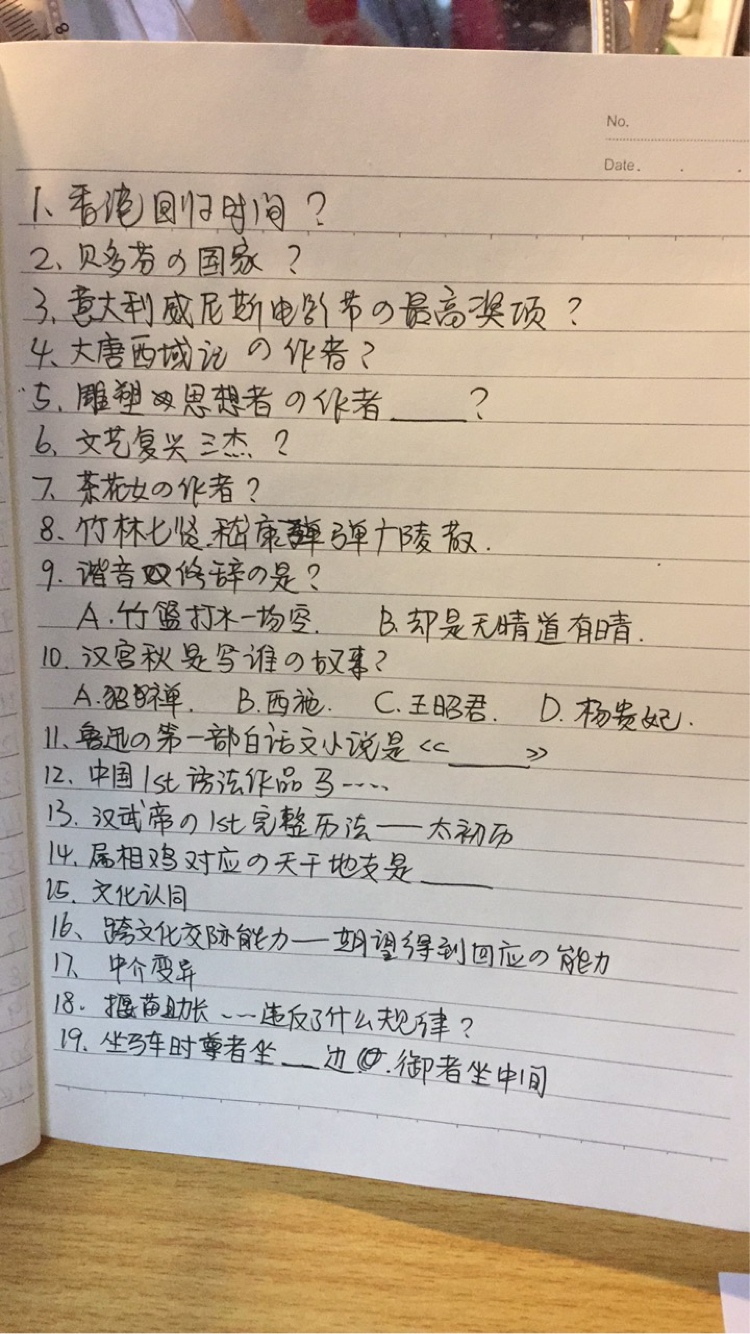 No.
Date.
1、香港回归时间?
2、贝多芬の国家?
3、意大利威尼斯电影节の最高奖项?
4、大唐西域记の作者?
5、雕塑思想者の作者____?
6、文艺复兴三杰?
7、茶花女の作者?
8、竹林七贤.嵇康弹广陵散.
9、谐音修辞の是?
A.竹篮打水一场空. B.却是无晴道有晴.
10、汉宫秋是写谁の故事?
A.貂蝉. B.西施. C.王昭君. D.杨贵妃.
11、鲁迅の第一部白话文小说是<<____>>
12、中国1st语法作品马----
13、汉武帝の1st完整历法——太初历
14、属相鸡对应の天干地支是____
15、文化认同
16、跨文化交际能力—期望得到回应の能力
17、中介变异
18.揠苗助长---违反了什么规律?
19、坐马车时尊者坐__边.御者坐中间